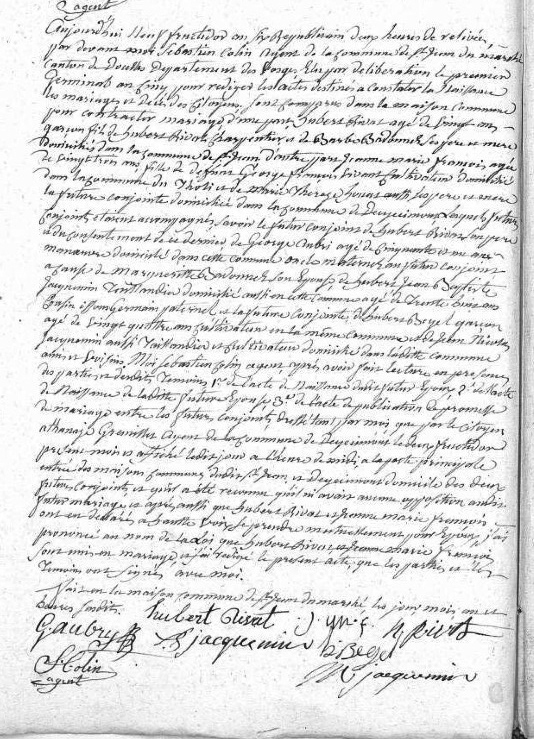 agent
Aujourd'hui neuf fructidor an Républicain deux heures de relevée,
par devant moi Sébastien Colin agent de la commune de St Jean du marché
canton de Docelles département des Vosges élu par deliberation le premier
Germinal an Cinq pour rediger les actes destinés a constater la Naissance
les mariages et décès des Citoyens, sont comparus dans la maison commune
pour contracter mariage d'une part hubert Rivat agé de vingt ans
garçon fils de hubert Rivat charpentier et de Barbe Badonnel ses pere et mere
domiciliés dans la commune de St Jean d'autre part Jeanne marie françois agée
de vingt trois ans fille de defunt George françois vivant cultivateur domicilié
dans la commune du et de marie Therese ses pere et mere
la future conjointe domiciliée dans la commune de Deycimont lesquels futurs
conjoints etaient accompagnés savoir le futur conjoint de hubert Rivat son pere
et du consentement de ce dernier de George Aubri agé de cinquante et un ans
manœuvre domicilié dans cette commune oncle maternel au futur conjoint
a cause de marguerite Badonnel son Epouse, de hubert Jean Baptiste
Jacquemin Taillandier domicilié aussi en cette commune agé de Trente huit ans
Cousin issu Germain paternel et la future conjointe de hubert Begel garçon
agé de vingt quatre ans cultivateur en la même commune et de Jean Nicolas
Jacquemin aussi Taillandier et cultivateur domicilié dans laditte commune
amis et voisins Moi Sebastien Colin agent après avoir fait lecture en presence
des parties et desdits Temoins 1° de l'acte de Naissance dudit futur Epoux, 2° de l'acte
de Naissance de laditte future Epouse 3° de l'acte de publication de promesse
de mariage entre les futurs conjoints dressé tant par moi que par le Citoyen
agent de la commune de Deycimont le deux fructidor
present mois et affiché ledit jour a l'heure de midi a la porte principale
entrée des maisons communes dudit St Jean, et Deycimont domicile des deux
futurs conjoints et qu'il a été reconnu qu'il n'y avait aucune opposition audit
futur mariage et après aussi que hubert Rivat et Jeanne marie françois
ont eu déclaré a haute voix se prendre mutuellement pour Epoux, j'ai
prononcé au nom de la Loi que hubert Rivat et Jeanne marie françois
sont unis en mariage, et j'ai rédigé le present acte que les parties et les
Temoins ont signés avec moi.
fait en la maison commune de St Jean du marché les jour mois an et
heures susdits.
hubert Rivat h Rivat
G aubry jacquemin h Begel
S Colin jacquemin
agent